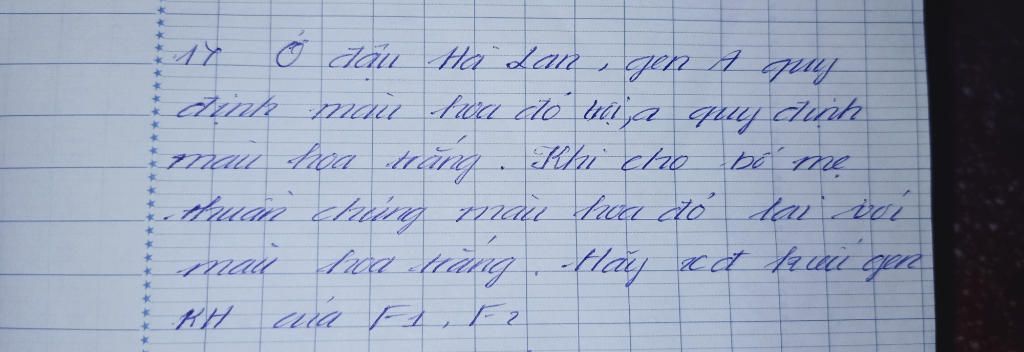 1Y Ở đậu Hà Lan, gen A quy
định màu hoa đỏ trội, a quy định
màu hoa trắng. Khi cho bố mẹ
thuần chủng màu hoa đỏ lai với
màu hoa trắng. Hãy xđ kiểu gen
KH của F1, F2